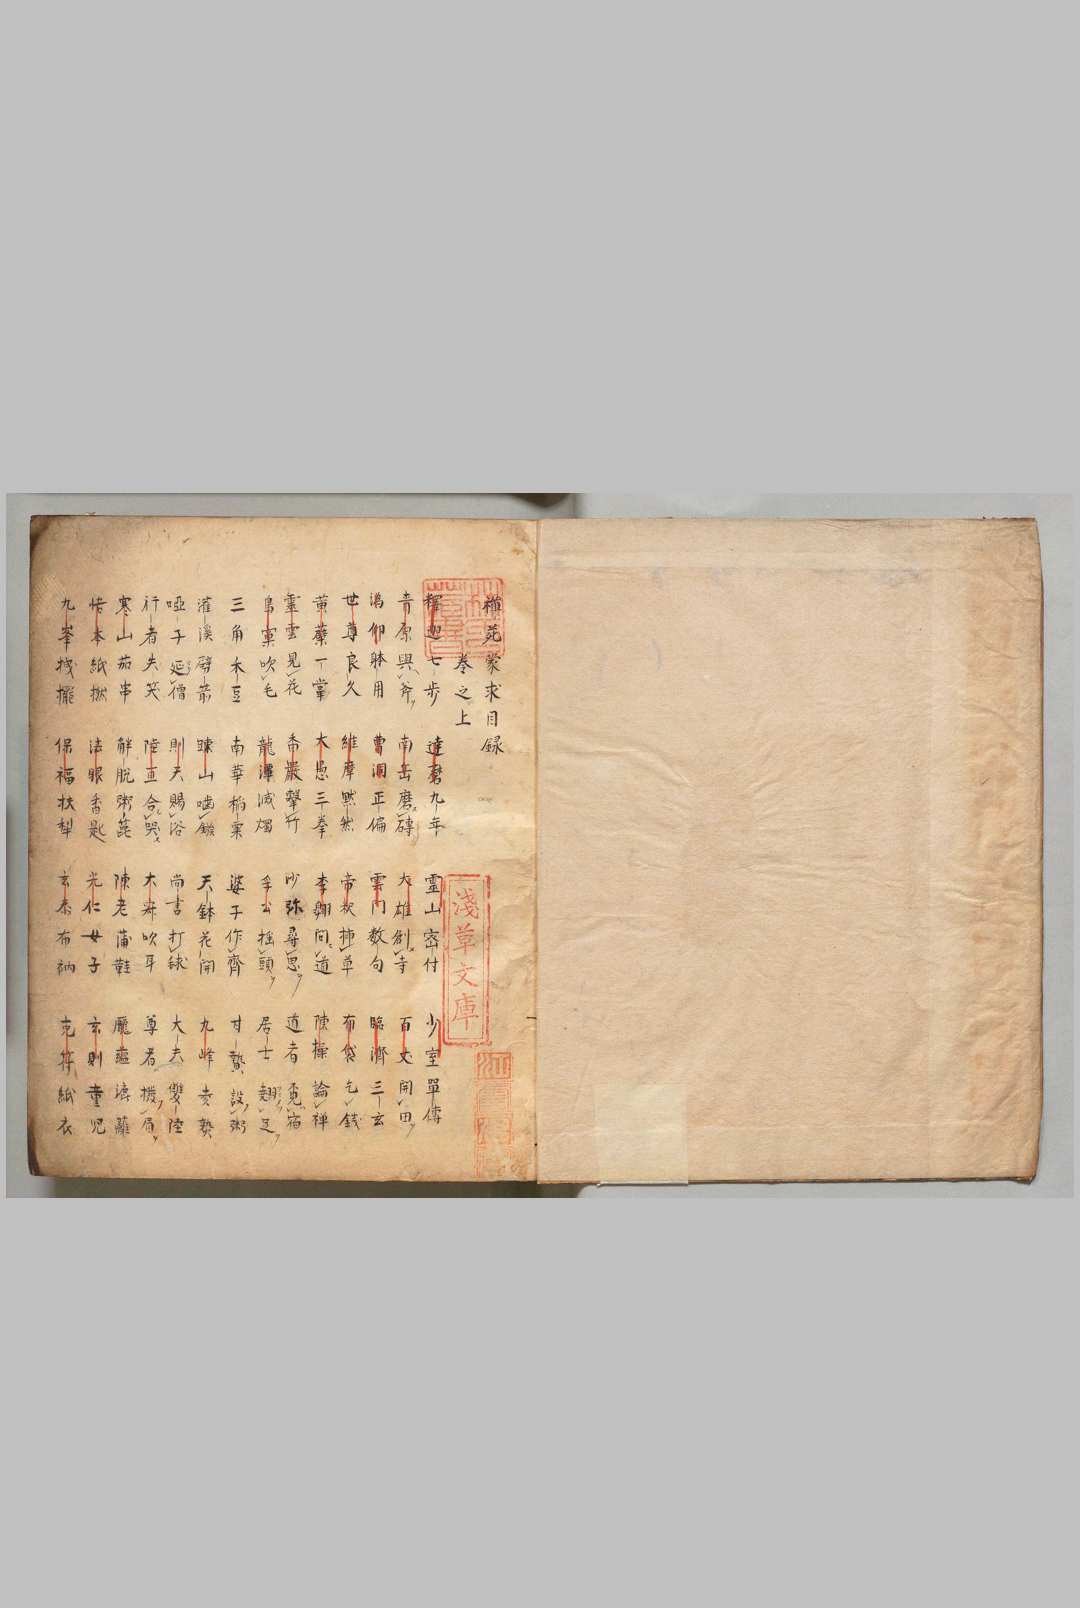 禅苑蒙求目録
巻之上
釋迦七歩 達磨九年 靈山密付 少室單傳
青原與斧 南岳磨磚 大雄創寺 百丈開田
溈仰躰用 曹洞正偏 雲門數句 臨濟三玄
世尊良久 維摩黙然 帝釈揷草 布袋乞錢
黄蘗一掌 大愚三拳 李翺問道 陳操論禅
靈雲見花 香嚴擊竹 沙弥尋思 道者
鳥窠吹毛 龍潭滅燭 孚公揺頭 居士翹足
三角木豆 南華稻粟 婆子作齋 甘贄設粥
灌溪劈箭 踈山囓鏃 天鉢花開 九峰
啞子延僧 則天賜浴 尚書打毬 大夫雙陸
行者失笑 陸亘合哭 大寂吹耳 尊者撥眉
寒山茄串 解脱粥箆 陳老蒲鞋 龐蘊漉籬
悟本紙撚 法眼香匙 光仁女子 玄則童児
九峯 保福扶犁 玄泰布衲 克符紙衣
淺草文庫